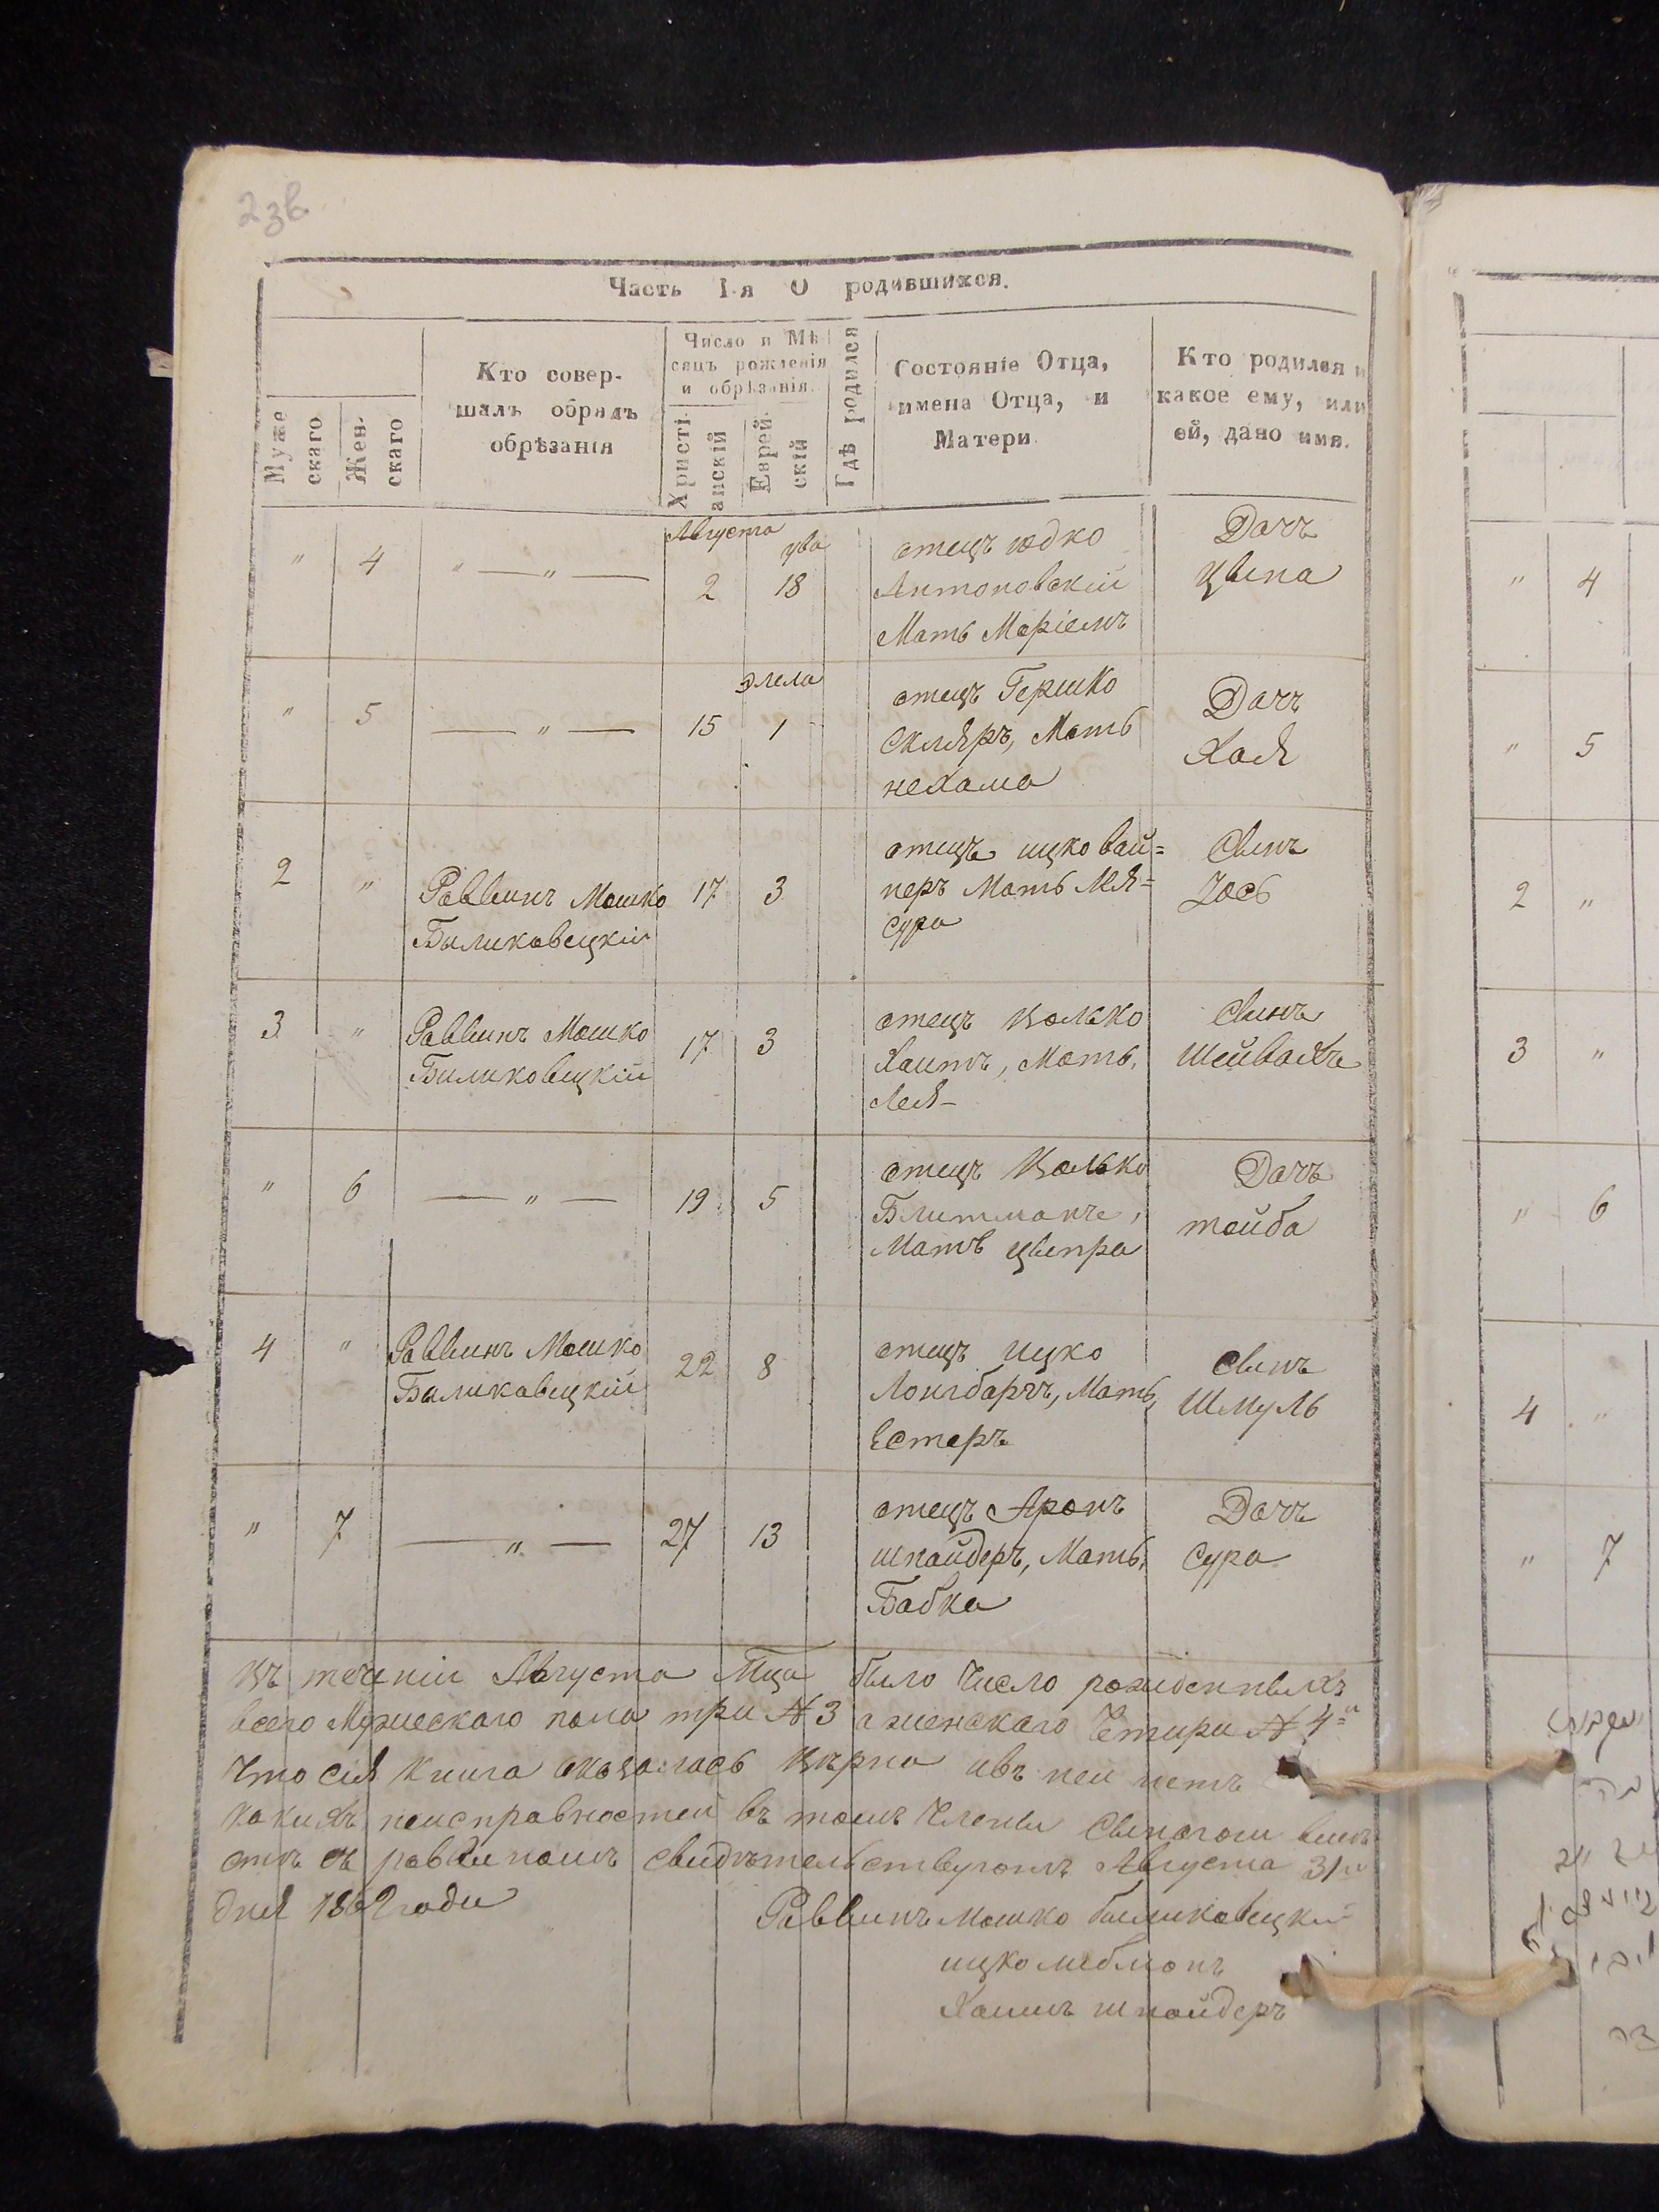 2зв
Часть I-я О родившихся.
Муже
скаго
Жен-
скаго
Кто совер-
шалъ обрядъ
обрѣзанія
Число и Мѣ
сяцъ рожденія
и обрѣзанія.
Христі
анскій
Еврей-
скій
Гдѣ родился
Состояніе Отца,
имена Отца, и
Матери
Кто родился и
какое ему, или
ей, дано имя.
Августа
" 4 " — " — 2 18
отецъ юдко
Антоновскій
Мать Маріемъ
Дочъ
Цвіна
элела
" 5 — " — 15 1
отецъ Гершко
Скляръ, Мать
нехама
Дочъ
Хая
2 " Раввинъ Мошко 17 3
Биликовецкій
отецъ ицко вай=
неръ Мать Лея=
сура
Сынъ
Іось
3 " Раввинъ Мошко 17 3
Биликовецкій
отецъ Волько
Хаитъ, Мать,
Лея-
Сынъ
Шейвахъ
" 6 — " — 19 5
отецъ Волько
Блитманъ,
Мать цыпра
Дочъ
тойба
4 " Раввинъ Мошко 22 8
Биликовецкій
отецъ ицко
Мать,
Естеръ
Сынъ
Шмуль
" 7 — " — 27 13
отецъ Аронъ
шнайдеръ, Мать,
Бабка
Дочъ
Сура
Въ теченіи Августа Мца было Число рожденныхъ
всего Мужескаго пола три № 3 а женскаго Четыри № 4="
Что сія Книга оказалась Вѣрна ивъ ней нетъ
какихъ неисправностей въ томъ Члены Сынагоги вмѣ
стѣ съ раввиномъ свидѣтельствуютъ Августа 31го
дня 1862 года
Раввинъ Мошко биликовецкій
ицко лебманъ
Хаимъ шнайдеръ
" 4
" 5
2 "
3 "
" 6
4 "
" 7